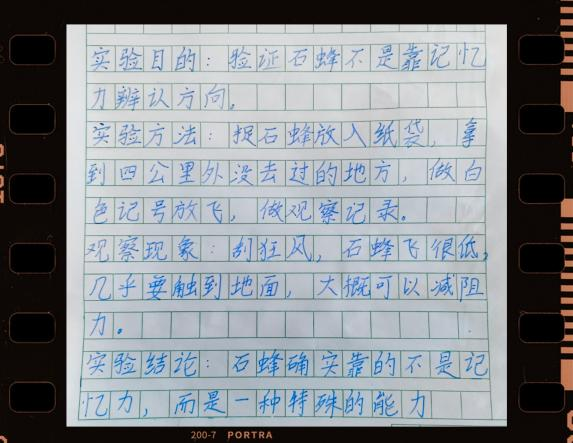 实验目的：验证石蜂不是靠记忆
力辨认方向。
实验方法：捉石蜂放入纸袋，拿
到四公里外没去过的地方，做白
色记号放飞，做观察记录。
观察现象：刮狂风，石蜂飞很低，
几乎要触到地面，大概可以减阻
力。
实验结论：石蜂确实靠的不是记
忆力，而是一种特殊的能力
200-7 PORTRA